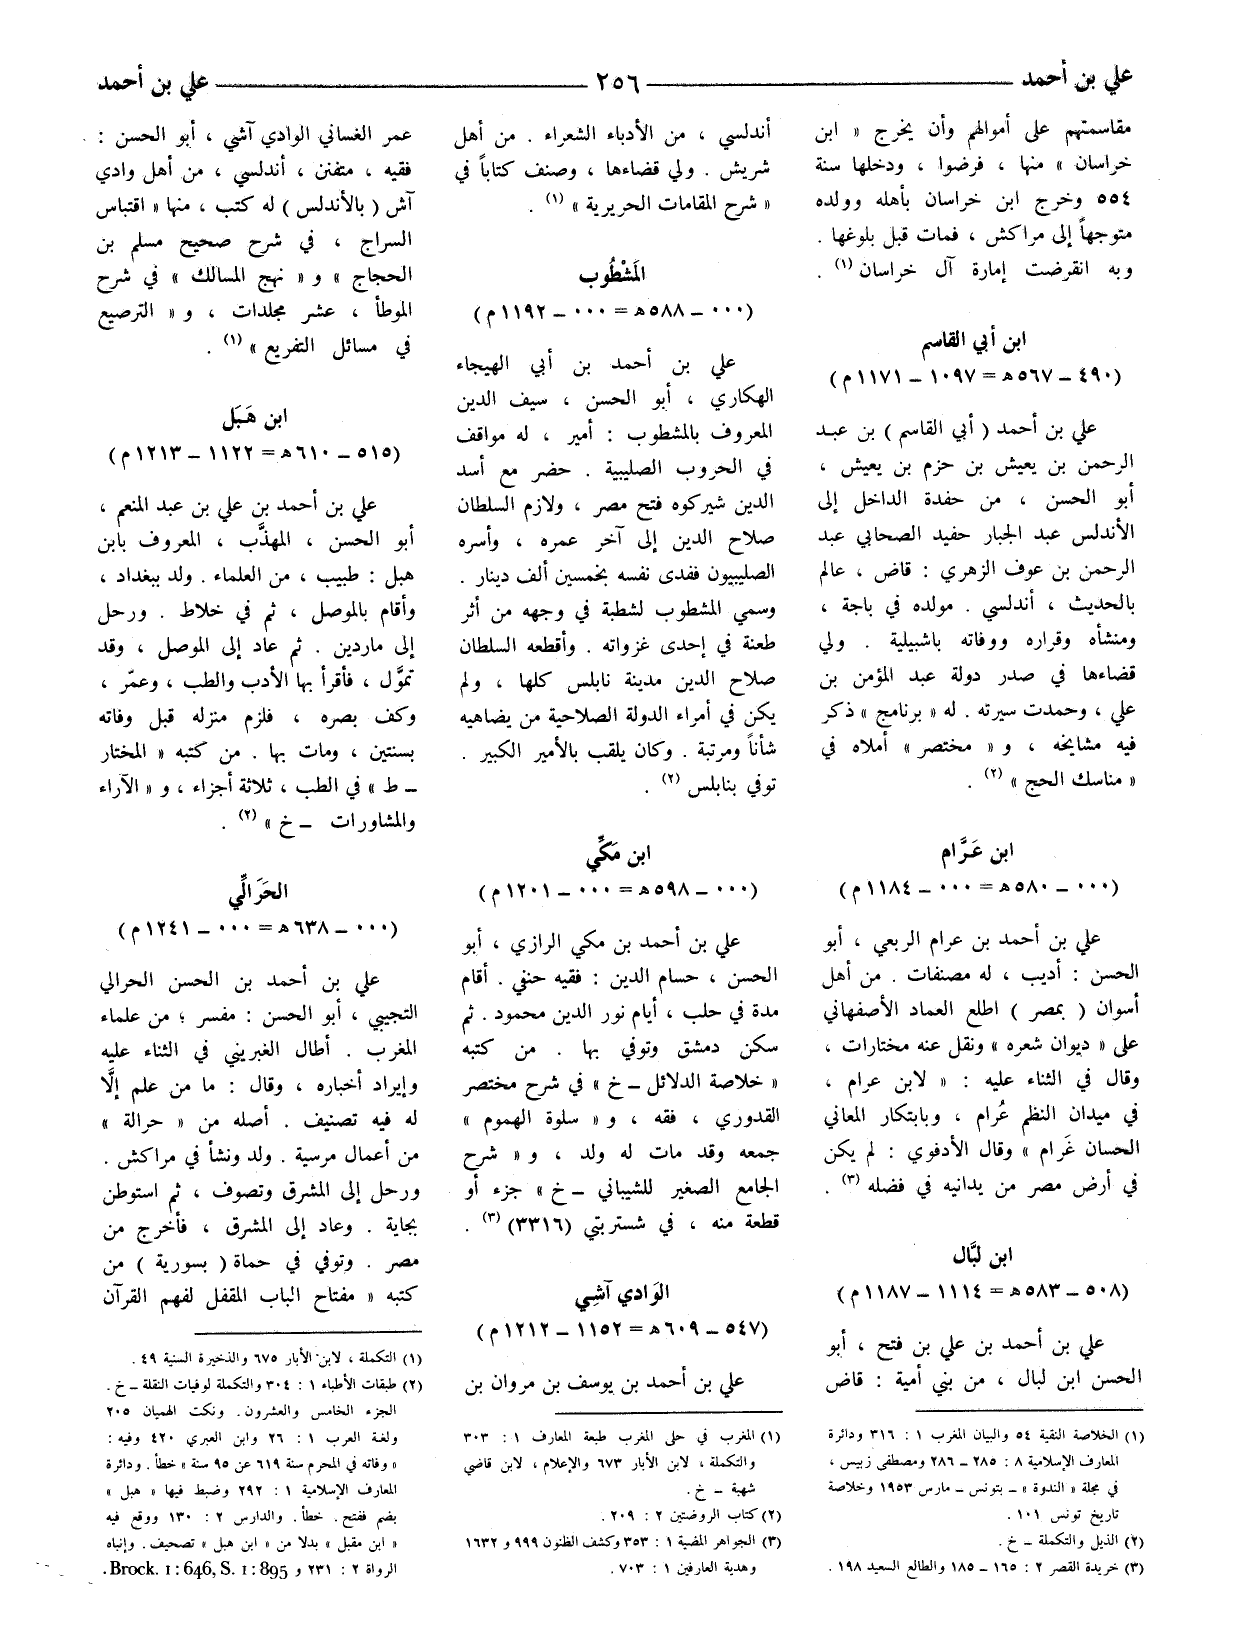 علي بن أحمد ــــــ ٢٥٦ ــــــ علي بن أحمد
مقاسمتهم على أموالهم وأن يخرج « ابن
خراسان » منها ، فرضوا ، ودخلها سنة
٥٥٤ وخرج ابن خراسان بأهله وولده
متوجهاً إلى مراكش ، فمات قبل بلوغها .
وبه انقرضت إمارة آل خراسان (١) .
ابن أبي القاسم
(٤٩٠ ــ ٥٦٧ هـ = ١٠٩٧ ــ ١١٧١ م)
علي بن أحمد ( أبي القاسم ) بن عبد
الرحمن بن يعيش بن حزم بن يعيش ،
أبو الحسن ، من حفدة الداخل إلى
الأندلس عبد الجبار حفيد الصحابي عبد
الرحمن بن عوف الزهري : قاض ، عالم
بالحديث ، أندلسي . مولده في باجة ،
ومنشأه وقراره ووفاته باشبيلية . ولي
قضاءها في صدر دولة عبد المؤمن بن
علي ، وحمدت سيرته . له « برنامج » ذكر
فيه مشايخه ، و « مختصر » أملاه في
« مناسك الحج » (٢) .
ابن عَرَّام
(٠٠٠ ــ ٥٨٠ هـ = ٠٠٠ ــ ١١٨٤ م)
علي بن أحمد بن عرام الربعي ، أبو
الحسن : أديب ، له مصنفات . من أهل
أسوان ( بمصر ) اطلع العماد الأصفهاني
على « ديوان شعره » ونقل عنه مختارات ،
وقال في الثناء عليه : « لابن عرام ،
في ميدان النظم عُرام ، وبابتكار المعاني
الحسان غَرام » وقال الأدفوي : لم يكن
في أرض مصر من يدانيه في فضله (٣) .
ابن لبَّال
(٥٠٨ ــ ٥٨٣ هـ = ١١١٤ ــ ١١٨٧ م)
علي بن أحمد بن علي بن فتح ، أبو
الحسن ابن لبال ، من بني أمية : قاض
(١) الخلاصة النقية ٥٤ والبيان المغرب ١ : ٣١٦ ودائرة
المعارف الإسلامية ٨ : ٢٨٥ ــ ٢٨٦ ومصطفى زبيس ،
في مجلة « الندوة » ــ بتونس ــ مارس ١٩٥٣ وخلاصة
تاريخ تونس ١٠١ .
(٢) الذيل والتكملة ــ خ .
(٣) خريدة القصر ٢ : ١٦٥ ــ ١٨٥ والطالع السعيد ١٩٨ .
أندلسي ، من الأدباء الشعراء . من أهل
شريش . ولي قضاءها ، وصنف كتاباً في
« شرح المقامات الحريرية » (١) .
المَشْطُوب
(٠٠٠ ــ ٥٨٨ هـ = ٠٠٠ ــ ١١٩٢ م)
علي بن أحمد بن أبي الهيجاء
الهكاري ، أبو الحسن ، سيف الدين
المعروف بالمشطوب : أمير ، له مواقف
في الحروب الصليبية . حضر مع أسد
الدين شيركوه فتح مصر ، ولازم السلطان
صلاح الدين إلى آخر عمره ، وأسره
الصليبيون ففدى نفسه بخمسين ألف دينار .
وسمي المشطوب لشطبة في وجهه من أثر
طعنة في إحدى غزواته . وأقطعه السلطان
صلاح الدين مدينة نابلس كلها ، ولم
يكن في أمراء الدولة الصلاحية من يضاهيه
شأناً ومرتبة . وكان يلقب بالأمير الكبير .
توفي بنابلس (٢) .
ابن مَكِّي
(٠٠٠ ــ ٥٩٨ هـ = ٠٠٠ ــ ١٢٠١ م)
علي بن أحمد بن مكي الرازي ، أبو
الحسن ، حسام الدين : فقيه حنفي . أقام
مدة في حلب ، أيام نور الدين محمود . ثم
سكن دمشق وتوفي بها . من كتبه
« خلاصة الدلائل ــ خ » في شرح مختصر
القدوري ، فقه ، و « سلوة الهموم »
جمعه وقد مات له ولد ، و « شرح
الجامع الصغير للشيباني ــ خ » جزء أو
قطعة منه ، في شستربتي (٣٣١٦) (٣) .
الوَادي آشِي
(٥٤٧ ــ ٦٠٩ هـ = ١١٥٢ ــ ١٢١٢ م)
علي بن أحمد بن يوسف بن مروان بن
(١) المغرب في حلى المغرب طبعة المعارف ١ : ٣٠٣
والتكملة ، لابن الأبار ٦٧٣ والإعلام ، لابن قاضي
شهبة ــ خ .
(٢) كتاب الروضتين ٢ : ٢٠٩ .
(٣) الجواهر المضية ١ : ٣٥٣ وكشف الظنون ٩٩٩ و ١٦٣٢
وهدية العارفين ١ : ٧٠٣ .
عمر الغساني الوادي آشي ، أبو الحسن :
فقيه ، متفنن ، أندلسي ، من أهل وادي
آش ( بالأندلس ) له كتب ، منها « اقتباس
السراج ، في شرح صحيح مسلم بن
الحجاج » و « نهج المسالك » في شرح
الموطأ ، عشر مجلدات ، و « الترصيع
في مسائل التفريع » (١) .
ابن هَبَل
(٥١٥ ــ ٦١٠ هـ = ١١٢٢ ــ ١٢١٣ م)
علي بن أحمد بن علي بن عبد المنعم ،
أبو الحسن ، المهذَّب ، المعروف بابن
هبل : طبيب ، من العلماء . ولد ببغداد ،
وأقام بالموصل ، ثم في خلاط . ورحل
إلى ماردين . ثم عاد إلى الموصل ، وقد
تموَّل ، فأقرأ بها الأدب والطب ، وعمّر ،
وكف بصره ، فلزم منزله قبل وفاته
بسنتين ، ومات بها . من كتبه « المختار
ــ ط » في الطب ، ثلاثة أجزاء ، و « الآراء
والمشاورات ــ خ » (٢) .
الحَرَالِّي
(٠٠٠ ــ ٦٣٨ هـ = ٠٠٠ ــ ١٢٤١ م)
علي بن أحمد بن الحسن الحرالي
التجيبي ، أبو الحسن : مفسر ؛ من علماء
المغرب . أطال الغبريني في الثناء عليه
وإيراد أخباره ، وقال : ما من علم إلَّا
له فيه تصنيف . أصله من « حرالة »
من أعمال مرسية . ولد ونشأ في مراكش .
ورحل إلى المشرق وتصوف ، ثم استوطن
بجاية . وعاد إلى المشرق ، فأخرج من
مصر . وتوفي في حماة ( بسورية ) من
كتبه « مفتاح الباب المقفل لفهم القرآن
(١) التكملة ، لابن الأبار ٦٧٥ والذخيرة السنية ٤٩ .
(٢) طبقات الأطباء ١ : ٣٠٤ والتكملة لوفيات النقلة ــ خ .
الجزء الخامس والعشرون . ونكت الهميان ٢٠٥
ولغة العرب ١ : ٢٦ وابن العبري ٤٢٠ وفيه :
« وفاته في المحرم سنة ٦١٩ عن ٩٥ سنة » خطأ . ودائرة
المعارف الإسلامية ١ : ٢٩٢ وضبط فيها « هبل »
بضم ففتح . خطأ . والدارس ٢ : ١٣٠ ووقع فيه
« ابن مقبل » بدلا من « ابن هبل » تصحيف . وإنباه
الرواة ٢ : ٢٣١ و Brock. 1 : 646, S. 1 : 895 .